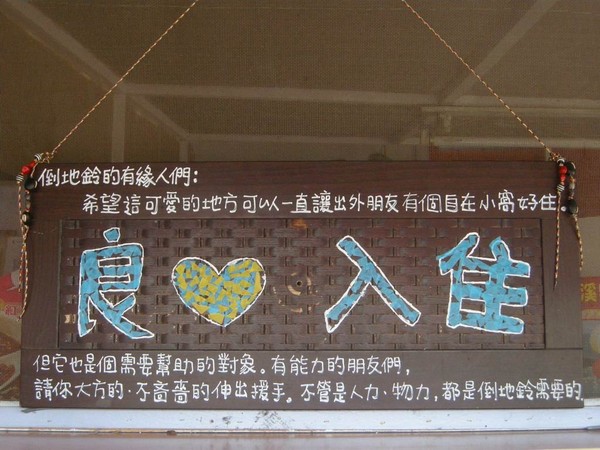 倒地鈴的有緣人們：
希望這可愛的地方可以一直讓出外朋友有個自在小窩好住
良♥入住
但它也是個需要幫助的對象。有能力的朋友們，
請你大方的、不吝嗇的伸出援手。不管是人力、物力，都是倒地鈴需要的。
溪